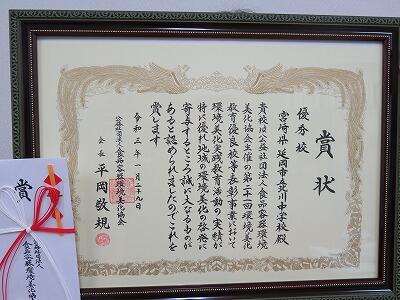 賞状
優秀校
宮崎県延岡市立北川中学校殿
貴校は公益社団法人食品容器環境
美化協会主催の第二十一回環境美化
教育優良校等表彰事業において
環境美化実践教育活動の実績が
特に優れ地域の環境美化の啓発に
寄与するところ誠に大なるものが
あると認められましたのでこれを
賞します
令和三年一月二十九日
公益社団法人食品容器環境美化協会
会長 平岡敬規
賞
公益社団法人
食品容器環境美化協